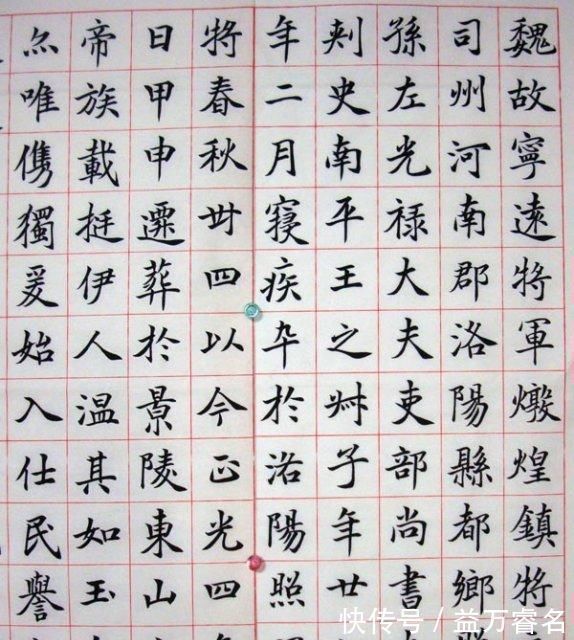 魏故寧遠將軍燉煌鎮將
司州河南郡洛陽縣都鄉
孫左光禄大夫吏部尚書
刾史南平王之子年廿
年二月寢疾卆於洛陽照
將春秋丗四以今正光四
日甲申遷葬於景陵東山
帝族載挺伊人温其如玉
唯儁獨爰始入仕民譽
快传号 / 益万睿名